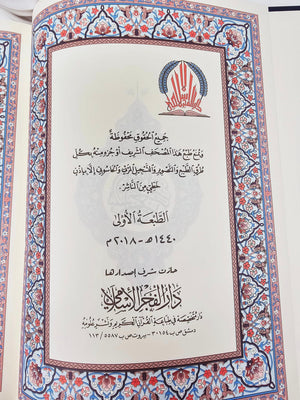 جميع الحقوق محفوظة
يمنع طبع هذا المصحف الشريف أو جزء منه بكل
طرق الطبع والتصوير والتسجيل المرئي والحاسوبي إلا بإذن
خطي من الناشر
الطبعة الأولى
١٤٤٠ هـ - ٢٠١٨ م
حازت شرف إصدارها
دار الفجر الإسلامي
دار متخصصة في طباعة القرآن الكريم ونشر علومه
دمشق ص ب ٣٠١٥٤ - بيروت ص ب ١١٣/٥٥٨٧